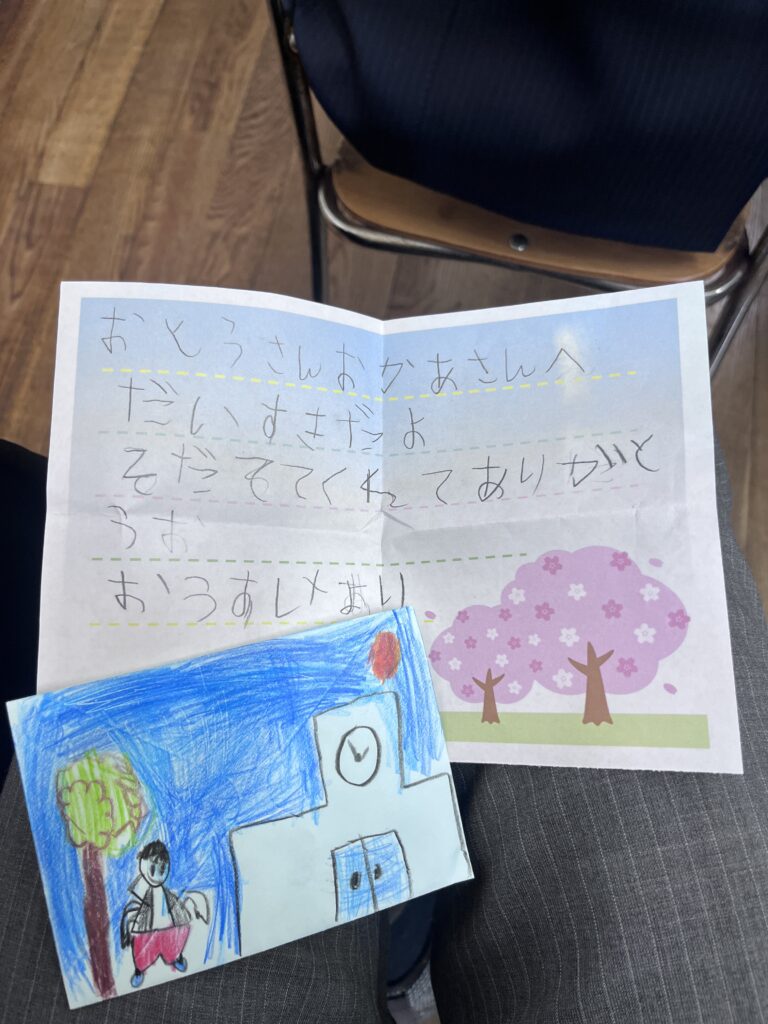 おとうさんおかあさんへ
だいすきだよ
そだててくれてありがと
うお